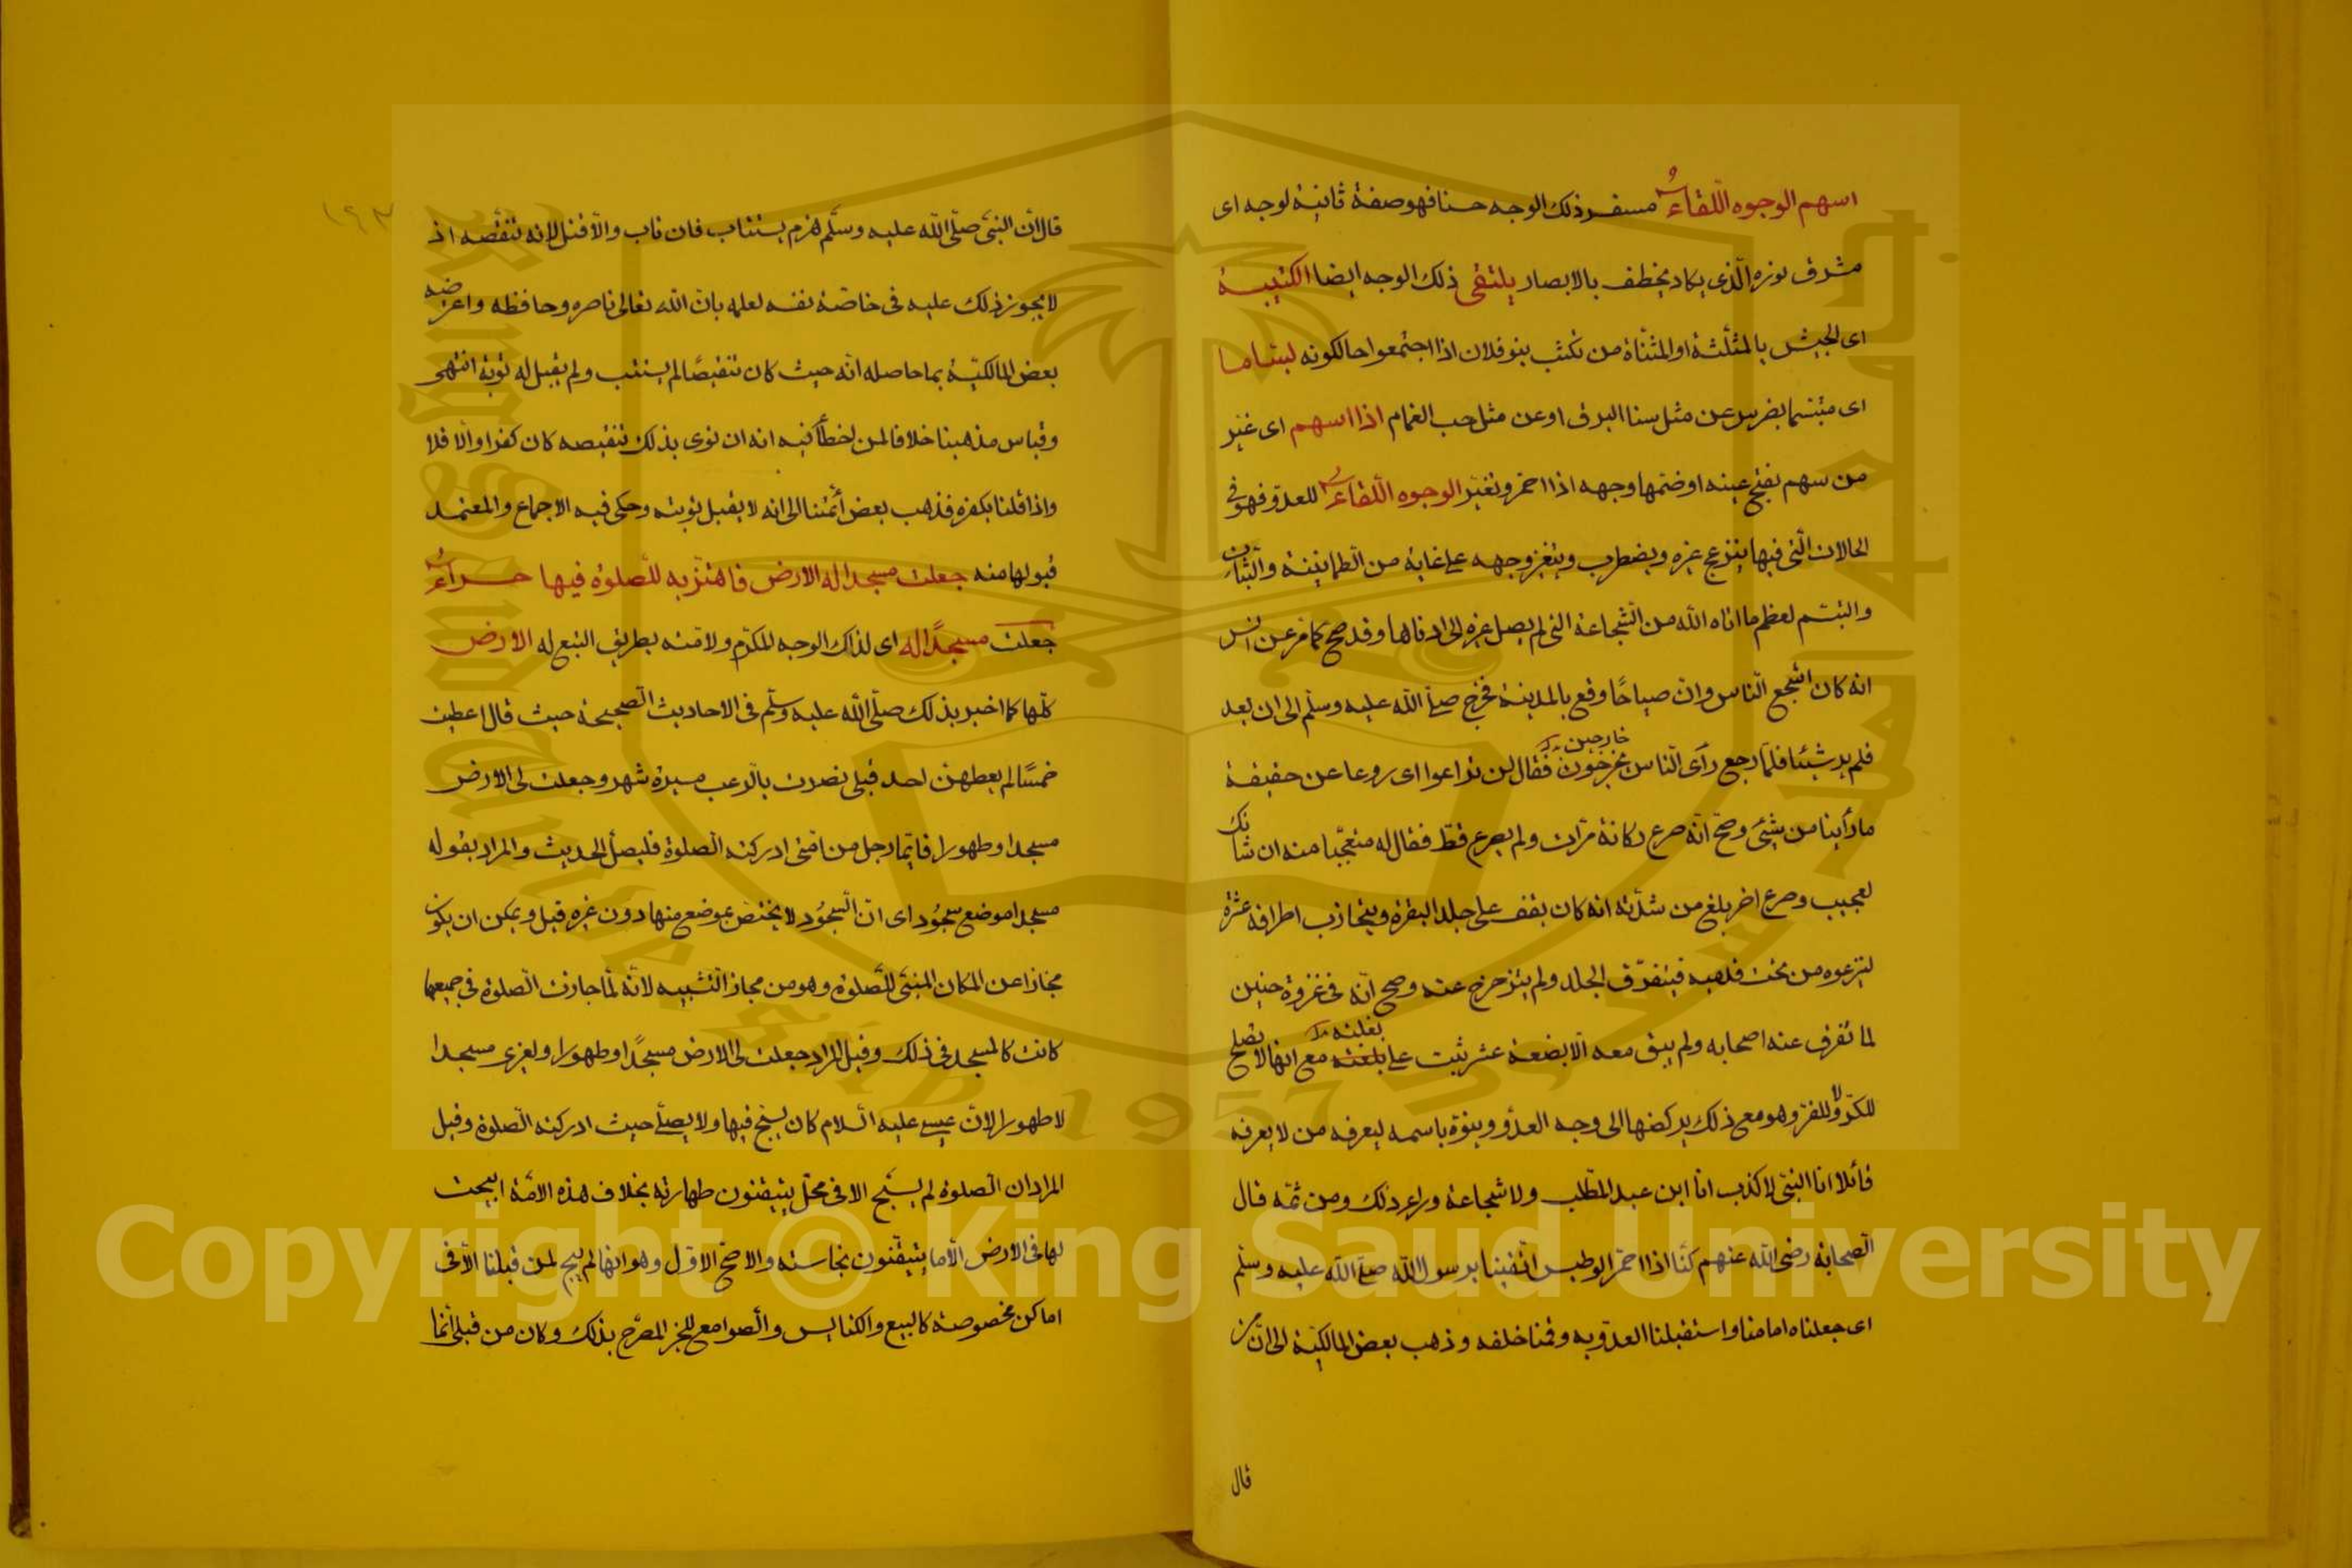 اسهم الوجوه اللقاءُ مسفر ذلك الوجه حسنا فهو صفة ثانية لوجه اى
مشرق نوره الّذى يكاد يخطف بالابصار يلتقى ذلك الوجه ايضا الكتيبة
اى الجيش بالمثلّثة او المثنّاة من تكثب بنو فلان اذا اجتمعوا حالكونه بسّاما
اى متبسّما بضرس عن مثل سنا البرق او عن مثل حب الغمام اذا اسهم اى غيّر
من سهم بفتح عينه او ضمها وجهه اذا احمرّ وتغيّر الوجوه اللّقاءُ للعدوّ فهو فى
الحالات الّتى فيها ينزعج غيره ويضطرب ويتغير وجهه على غاية من الطمانينة والثبات
والتبسّم لعظم ما اتاه الله من الشّجاعة التى لم يصل غيره الى ادناها وقد صح كما مرّ عن انس
انه كان اشجع النّاس وانّ صياحًا وقع بالمدينة فخرج صلى الله عليه وسلّم الى ان بعد
فلم ير شيئا فلمّا رجع رأى النّاس يخرجون خارجين فقال لن تراعوا اى روعا عن حقيقة
ما رأينا من شئ وصحّ انّه صرع ركانة مرّات ولم يصرع قط فقال له متعجّبا منه ان شانك
لعجيب وصرع اخر بلغ من شدّته انه كان يقف على جلد البقرة ويتجاذب اطرافه عشرة
لينزعوه من تحت قدميه فيتفرّق الجلد ولم يتزحزح عنه وصح انّه فى غزوة حنين
لما تفرق عنه اصحابه ولم يبق معه الا بضعة عشر ثبت على بغلته مع انها لا تصلح
للكرّ ولا للفرّ وهو مع ذلك يركضها الى وجه العدوّ وينوّه باسمه ليعرفه من لا يعرفه
قائلا انا النبىّ لا كذب انا ابن عبد المطّلب ولا شجاعة وراء ذلك ومن ثمّه قال
الصحابة رضى الله عنهم كنّا اذا احمرّ الوطيس اتّقينا برسول الله صلى الله عليه وسلّم
اى جعلناه امامنا واستقبلنا العدوّ به وقمنا خلفه وذهب بعض المالكيّة الى انّ من
قال
١٩٣
قال انّ النبىّ صلّى الله عليه وسلّم هزم يستتاب فان تاب والّا قتل لانه تنقّصه اذ
لا يجوز ذلك عليه فى خاصّة نفسه لعلمه بان الله تعالى ناصره وحافظه واعترضه
بعض المالكيّة بما حاصله انّه حيث كان تنقيصًا لم يستتب ولم يقبل له توبة انتهى
وقياس مذهبنا خلافا لمن اخطأ فيه انه ان نوى بذلك تنقيصه كان كفرا والّا فلا
واذا قلنا بكفره فذهب بعض أئمّتنا الى انه لا يقبل توبته وحكى فيه الاجماع والمعتمد
قبولها منه جعلت مسجدا له الارض فاهتزّ به للصّلوة فيها حراءُ
جعلت مسجدًا له اى لذلك الوجه المكرّم ولامّته بطريق التبع له الارض
كلّها كما اخبر بذلك صلّى الله عليه وسلّم فى الاحاديث الصحيحة حيث قال اعطيت
خمسًا لم يعطهنّ احد قبلى نصرت بالرّعب مسيرة شهر وجعلت لى الارض
مسجدا وطهورا فايّما رجل من امّتى ادركته الصّلوة فليصلّ الحديث والمراد بقوله
مسجدا موضع سجُود اى انّ السّجوُد لا يختصّ بموضع منها دون غيره قيل ويمكن ان يكون
مجازا عن المكان المبنىّ للصّلوة وهو من مجاز التّشبيه لانّه لمّا جازت الصّلوة فى جميعها
كانت كالمسجد فى ذلك وقيل المراد جعلت لى الارض مسجدًا وطهورا ولغيرى مسجدا
لا طهورا لانّ عيسى عليه السّلام كان يسيح فيها ولا يصلّى حيث ادركته الصّلوة وقيل
المراد ان الصّلوة لم يسبح الا فى محلّ يتيقنون طهارته بخلاف هذه الامّة ابيحت
لها فى الارض الّا ما يتيقّنون نجاسته والاصحّ الاوّل وهو انها لم يبح لمن قبلنا الّا فى
اماكن مخصوصة كالبيع والكنايس والصّوامع للخبر المصرّح بذلك وكان من قبلى انّما
جامعة الملك سعود
King Saud University
1957
Copyright © King Saud University